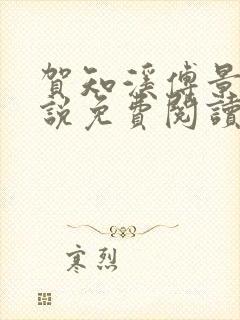 賀知漾傅景
說免費閱讀
寒烈